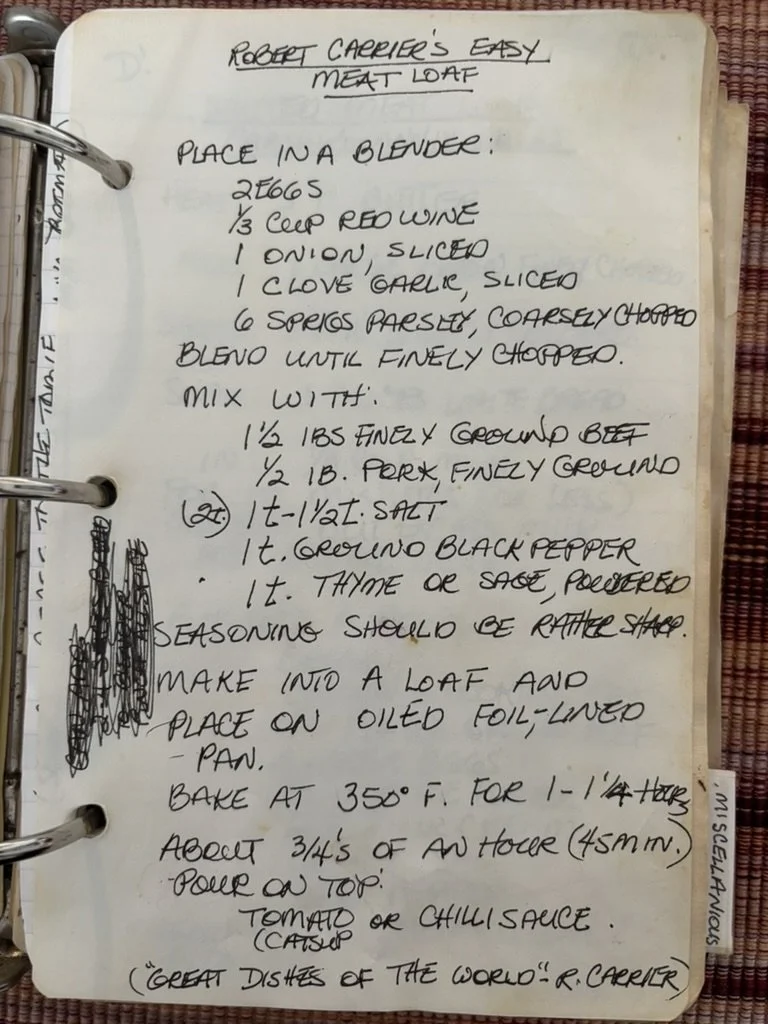 ROBERT CARRIER'S EASY
MEAT LOAF
PLACE IN A BLENDER:
2 EGGS
1/3 CUP RED WINE
1 ONION, SLICED
1 CLOVE GARLIC, SLICED
6 SPRIGS PARSLEY, COARSELY CHOPPED
BLEND UNTIL FINELY CHOPPED.
MIX WITH:
1 1/2 lBS FINELY GROUND BEEF
1/2 lB. PORK, FINELY GROUND
(2t.) 1t-1 1/2t. SALT
1t. GROUND BLACK PEPPER
1t. THYME OR SAGE, POWDERED
SEASONING SHOULD BE RATHER SHARP.
MAKE INTO A LOAF AND
PLACE ON OILED FOIL-LINED
PAN.
BAKE AT 350° F. FOR 1-1 1/4 HOURS
ABOUT 3/4'S OF AN HOUR (45 MIN.)
POUR ON TOP:
TOMATO OR CHILLI SAUCE.
(CATSUP
("GREAT DISHES OF THE WORLD" - R. CARRIER)
MISCELLANIOUS